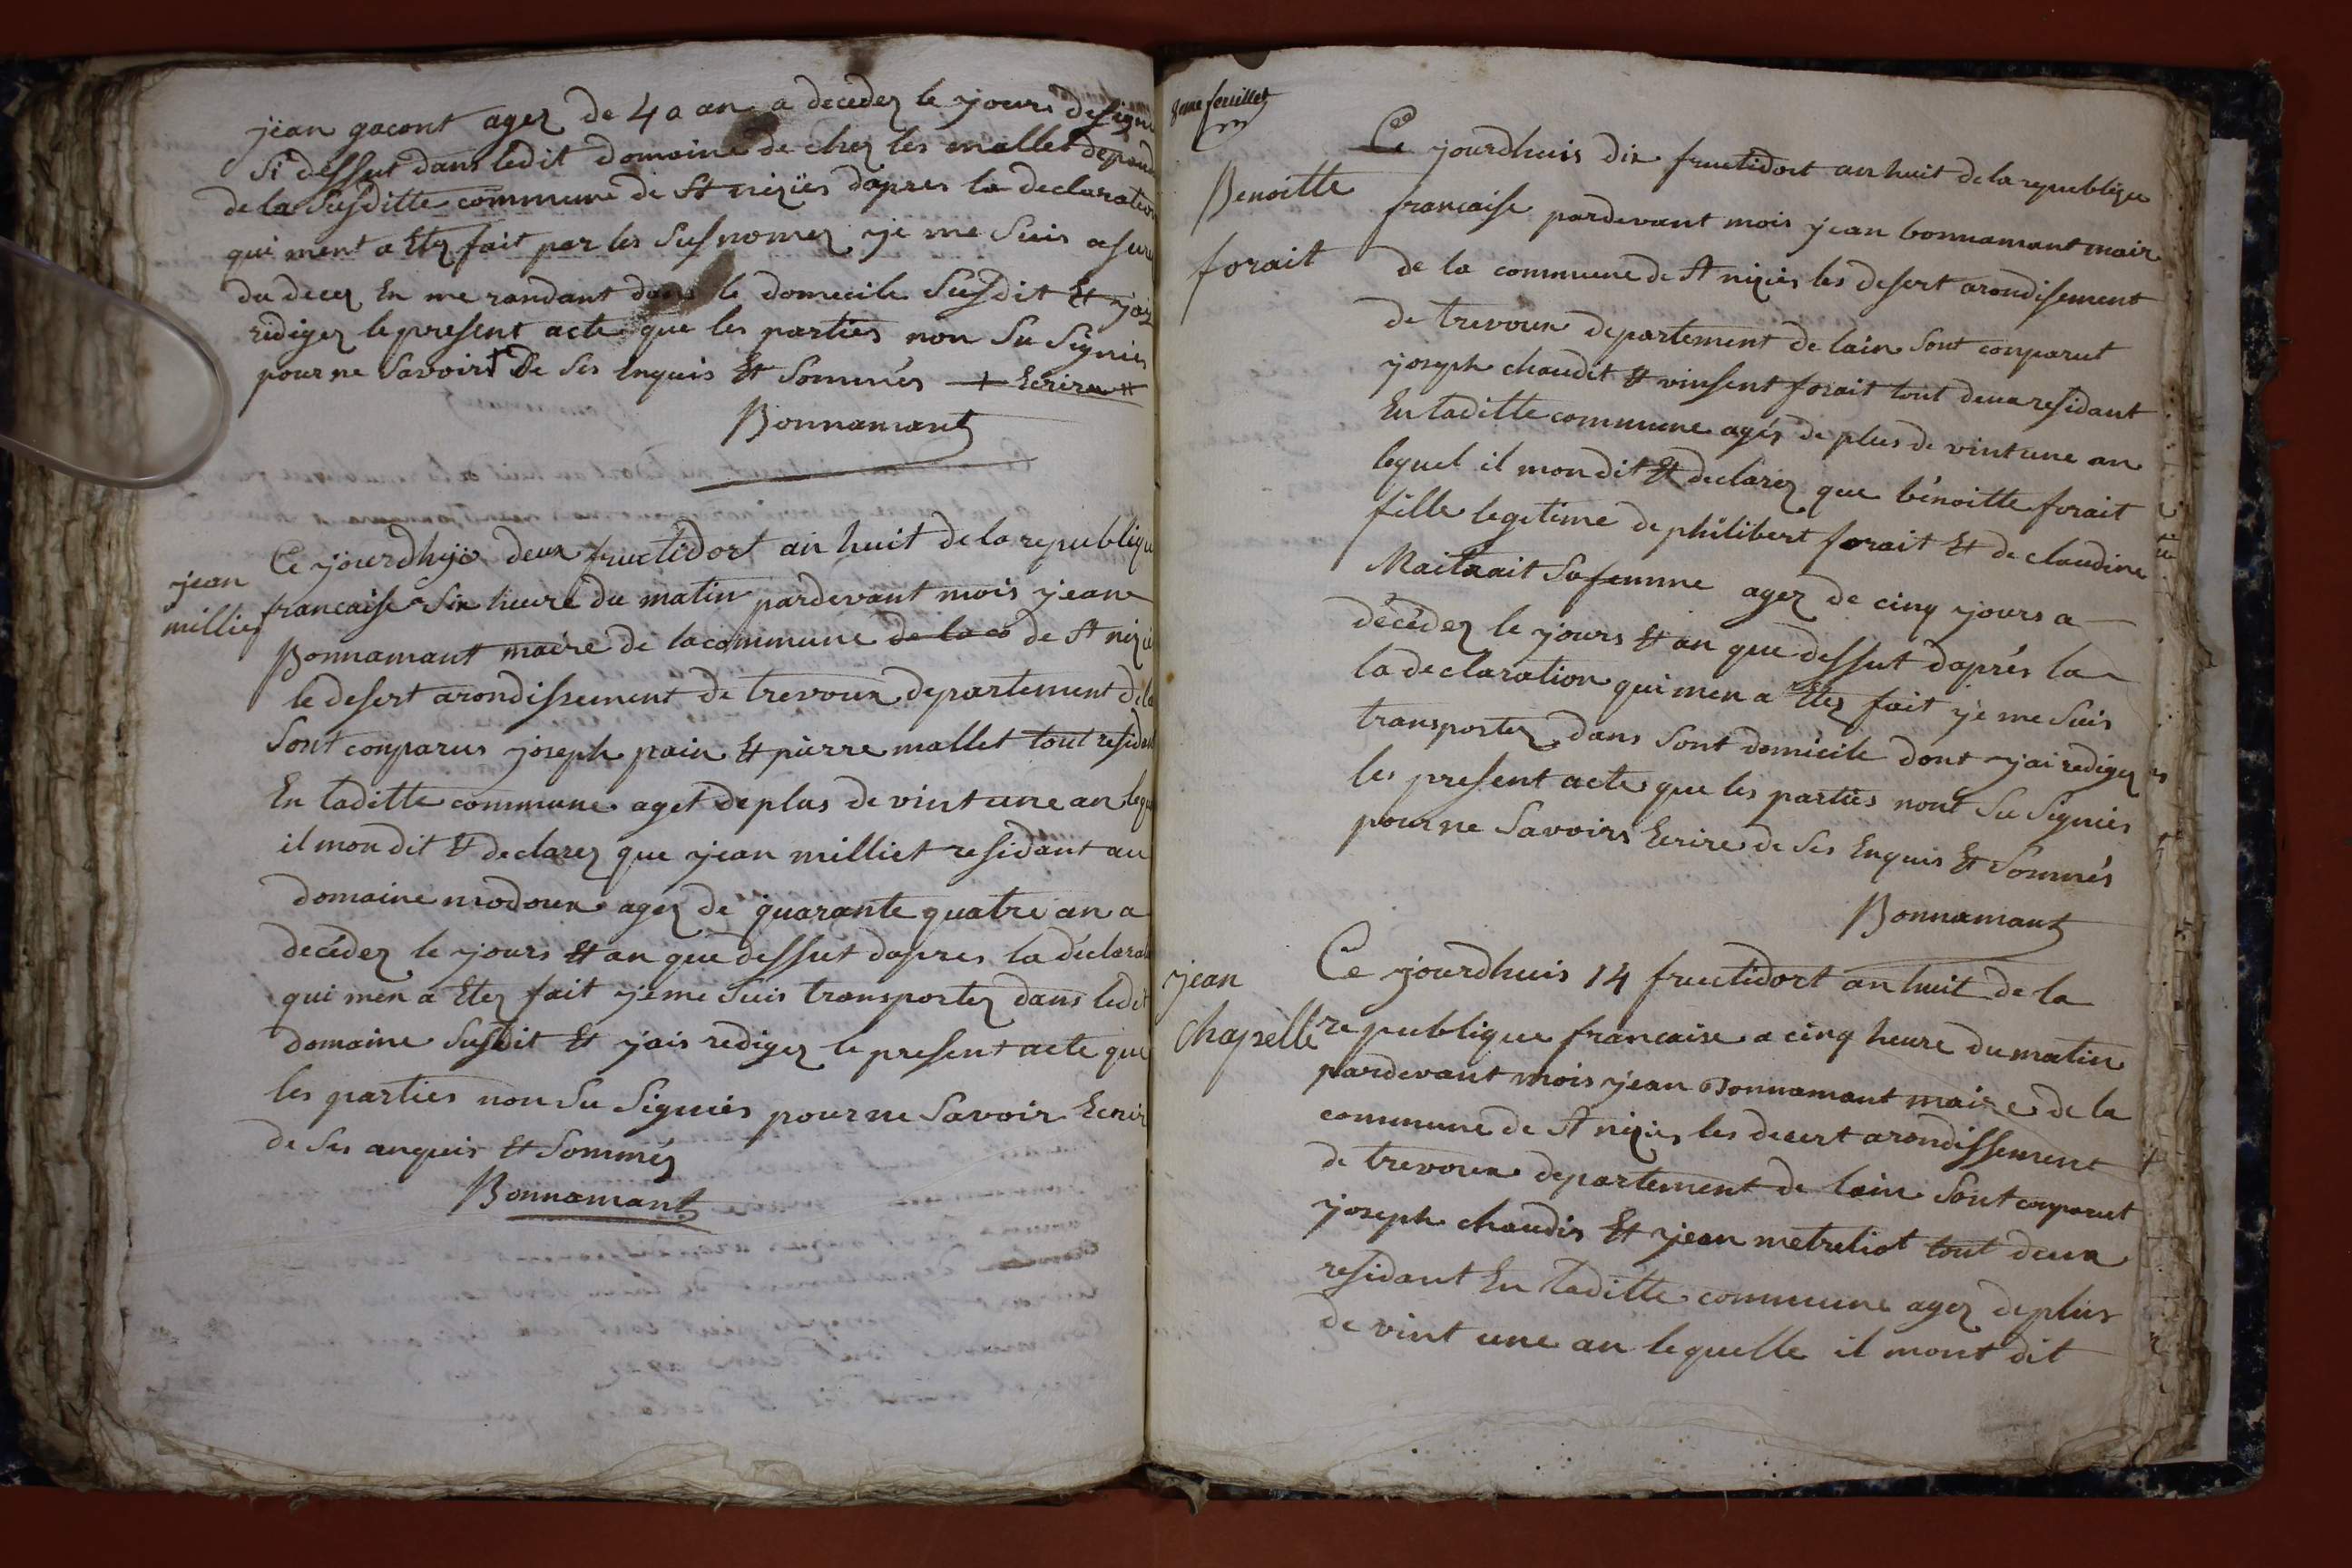 jean gacont agez de 40 an a decedez le jours designe
si dessut dans ledit domaine de chez les mallet depend
de la susditte commune de St niziés dapres la declaration
qui ment a Etez fait par les susnomez je me suis asure
du decez En me randant dans le domicile susdit Et jai
redigez le present acte que les parties non su signiés
pour ne savoirs + De ses Enquis Et sommés + Ecrire #
Bonnamant
jean
milliet
Ce jourdhujs deux fructidort an huit de la republique
francaise six heure du matin pardevant mois jean
Bonnamant maire de la commune de la co de St nizié
le desert arondissement de trevoux departement de la
sont conparus joseph pain Et pierre mallet tout resident
En laditte commune aget de plus de vint une an leque
il mon dit Et declarez que jean milliet residant au
domaine modoux agez de quarante quatre an a
decédez le jours Et an que dessut dapres la declarat
qui men a Etez fait je me suis transportez dans ledit
domaine susdit Et jais redigez le present acte que
les parties non su signiés pour ne savoir Ecrir
de ses anquis Et sommés
Bonnamant
8eme feuillet
Benoitte
forait
Ce jourdhuis dix fructidort an huit de la republique
francaise pardevant mois jean bonnamant maire
de la commune de St niziés les desert arondisement
de trevoux departement de lain sont conparut
joseph chaudit Et vinsent forait tout deux residant
En laditte commune agés de plus de vint une an
lequel il mon dit Et declarez que bénoitte forait
fille legetime de philibert forait Et de claudine
Maitrait sa femme agez de cinq jours a
décédez le jours Et an que dessut daprés la
la declaration qui men a Etez fait je me suis
transportez dans sont domicile dont jai redigez
les present acte que les parties nont su signiés
pour ne savoirs Ecrire de ses Enquis Et sommés
Bonnamant
jean
chapelle
Ce jourdhuis 14 fructidort an huit de la
republique francaise a cinq heure du matin
pardevant mois jean Bonnamant maire de la
commune de St niziés les desert arondissement
de trevoux departement de lain sont conparut
joseph chaudis Et jean metreliot tout deux
residant En laditte commune agez de plus
de vint une an lequelle il mont dit